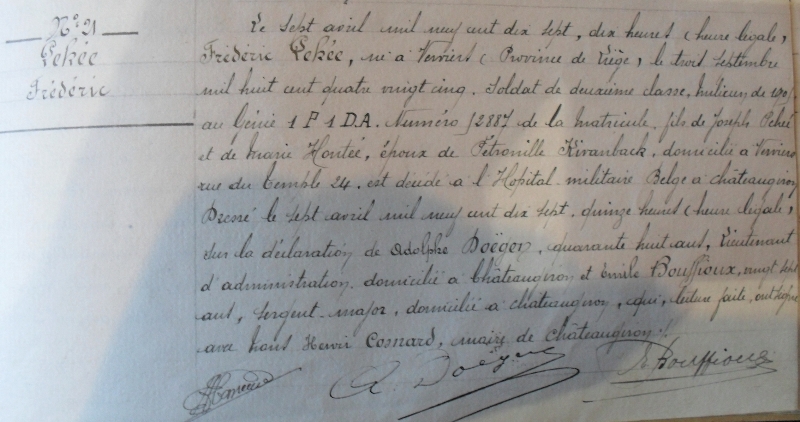 N° 21
Pekée
Frédéric
Le sept avril mil neuf cent dix sept, dix heures (heure légale,
Frédéric Pekée, né à Verviers (Province de Liège, le trois septembre
mil huit cent quatre vingt cinq. Soldat de deuxième classe, milicien de 1905
au Génie 1 P 1 D.A. Numéro 12887 de la matricule, fils de Joseph Pekée
et de Marie Hontée, époux de Pétronille Kiranback, domicilié à Verviers
rue du Temple 24. est décédé à l'Hopital militaire Belge à châteaugiron
Dressé le sept avril mil neuf cent dix sept, quinze heures (heure légale,
sur la déclaration de Adolphe Doëgen, quarante huit ans, Lieutenant
d'administration domicilié à Châteaugiron et Emile Bouffioux, vingt sept
ans, sergent-major, domicilié à chateaugiron, qui, lecture faite, ont signé
avec nous Henri Cosnard, maire de châteaugiron./.
A. Doëgen
E. Bouffioux